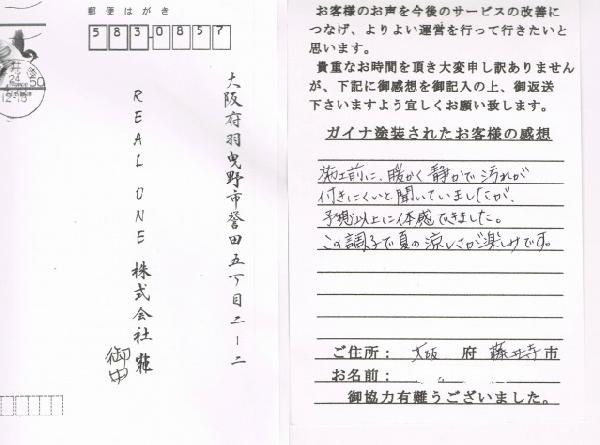 郵便はがき
583-0857
大阪府羽曳野市誉田五丁目二ー二
REAL ONE 株式会社
御中
50
24
12-18
お客様のお声を今後のサービスの改善に
つなげ、よりよい運営を行って行きたいと
思います。
貴重なお時間を頂き大変申し訳ありません
が、下記に御感想を御記入の上、御返送
下さいますよう宜しくお願い致します。
ガイナ塗装されたお客様の感想
施工前に、暖かく静かで汚れが
付きにくいと聞いていましたが、
予想以上に体感できました。
この調子で夏の涼しさが楽しみです。
ご住所: 大阪 府 藤井寺市
お名前:
御協力有難うございました。